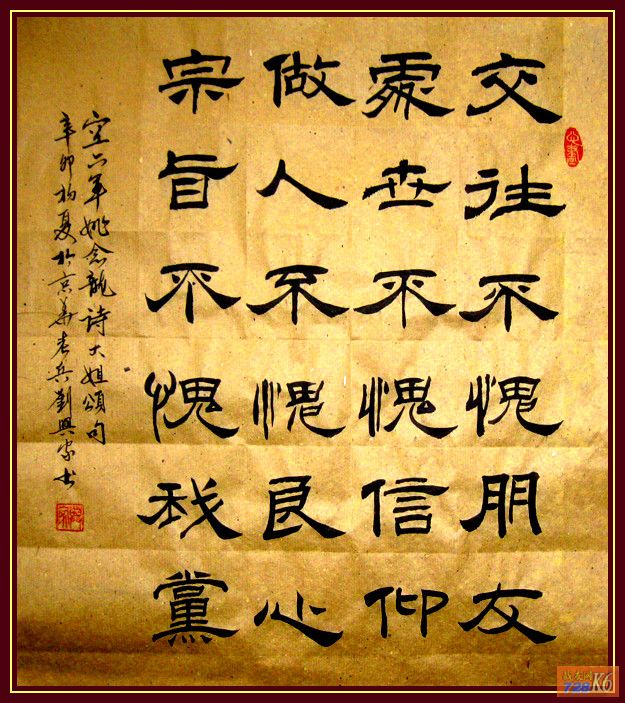 交往不愧朋友
處世不愧信仰
做人不愧良心
宗旨不愧我黨
空六军姚念龍诗大姐頌句
辛卯初夏於京華老兵劉興家书
战友网
728K6